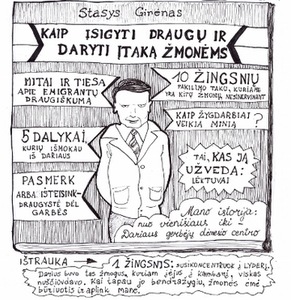 Stasys Girėnas
KAIP ĮSIGYTI DRAUGŲ IR
DARYTI ĮTAKĄ ŽMONĖMS
MITAI IR TIESA
APIE EMIGRANTŲ
DRAUGIŠKUMĄ
10 ŽINGSNIŲ
PAKILIMO TAKU, KURIAME
KITŲ ŽMONIŲ
5 DALYKAI,
KURIŲ IŠMOKAU
IŠ DARIAUS
KAIP ŽYGDARBIAI
VEIKIA MINIĄ ?
PASMERK
ARBA IŠTEISINK-
DRAUGYSTĖ DĖL
GARBĖS
TAI, KAS JĄ
UŽVEDA:
LĖKTUVAI!
Mano istorija:
nuo vienišiaus iki
Dariaus gerbėjų dėmesio centro
IŠTRAUKA →
1 ŽINGSNIS: SUSIKONCENTRUOK Į LYDERĮ.
Darius buvo tas žmogus, kuriam įėjus į kambarį, viskas
nuščiūdavo. Kai tapau jo bendražygiu, žmonės ėmė
būriuotis ir aplink mane.